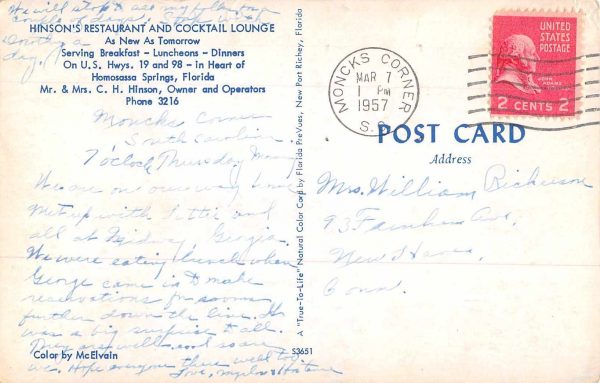 We will stop & see my
couple of days. Stop with
Dorothy a
day.
HINSON'S RESTAURANT AND COCKTAIL LOUNGE
As New As Tomorrow
Serving Breakfast - Luncheons - Dinners
On U.S. Hwys. 19 and 98 - in Heart of
Homosassa Springs, Florida
Mr. & Mrs. C. H. Hinson, Owner and Operators
Phone 3216
Moncks Corner
South Carolina
7 o'clock Thursday
We are on our way home
Met up with and
all at Midway, Georgia.
We were eating lunch when
George came in to make
reservations for rooms
further down the line. It
was a big surprise to all.
They are well and so are
we. Hope everyone there well too.
Love,
Color by McElvain
A "True-To-Life" Natural Color Card by Florida PreVues, New Port Richey, Florida
53651
MONCKS CORNER
MAR 7
1 PM
1957
S.C.
UNITED
STATES
POSTAGE
JOHN ADAMS
2 CENTS 2
POST CARD
Address
Mrs. William Rickerson
93 Farnham Ave.
New Haven
Conn.